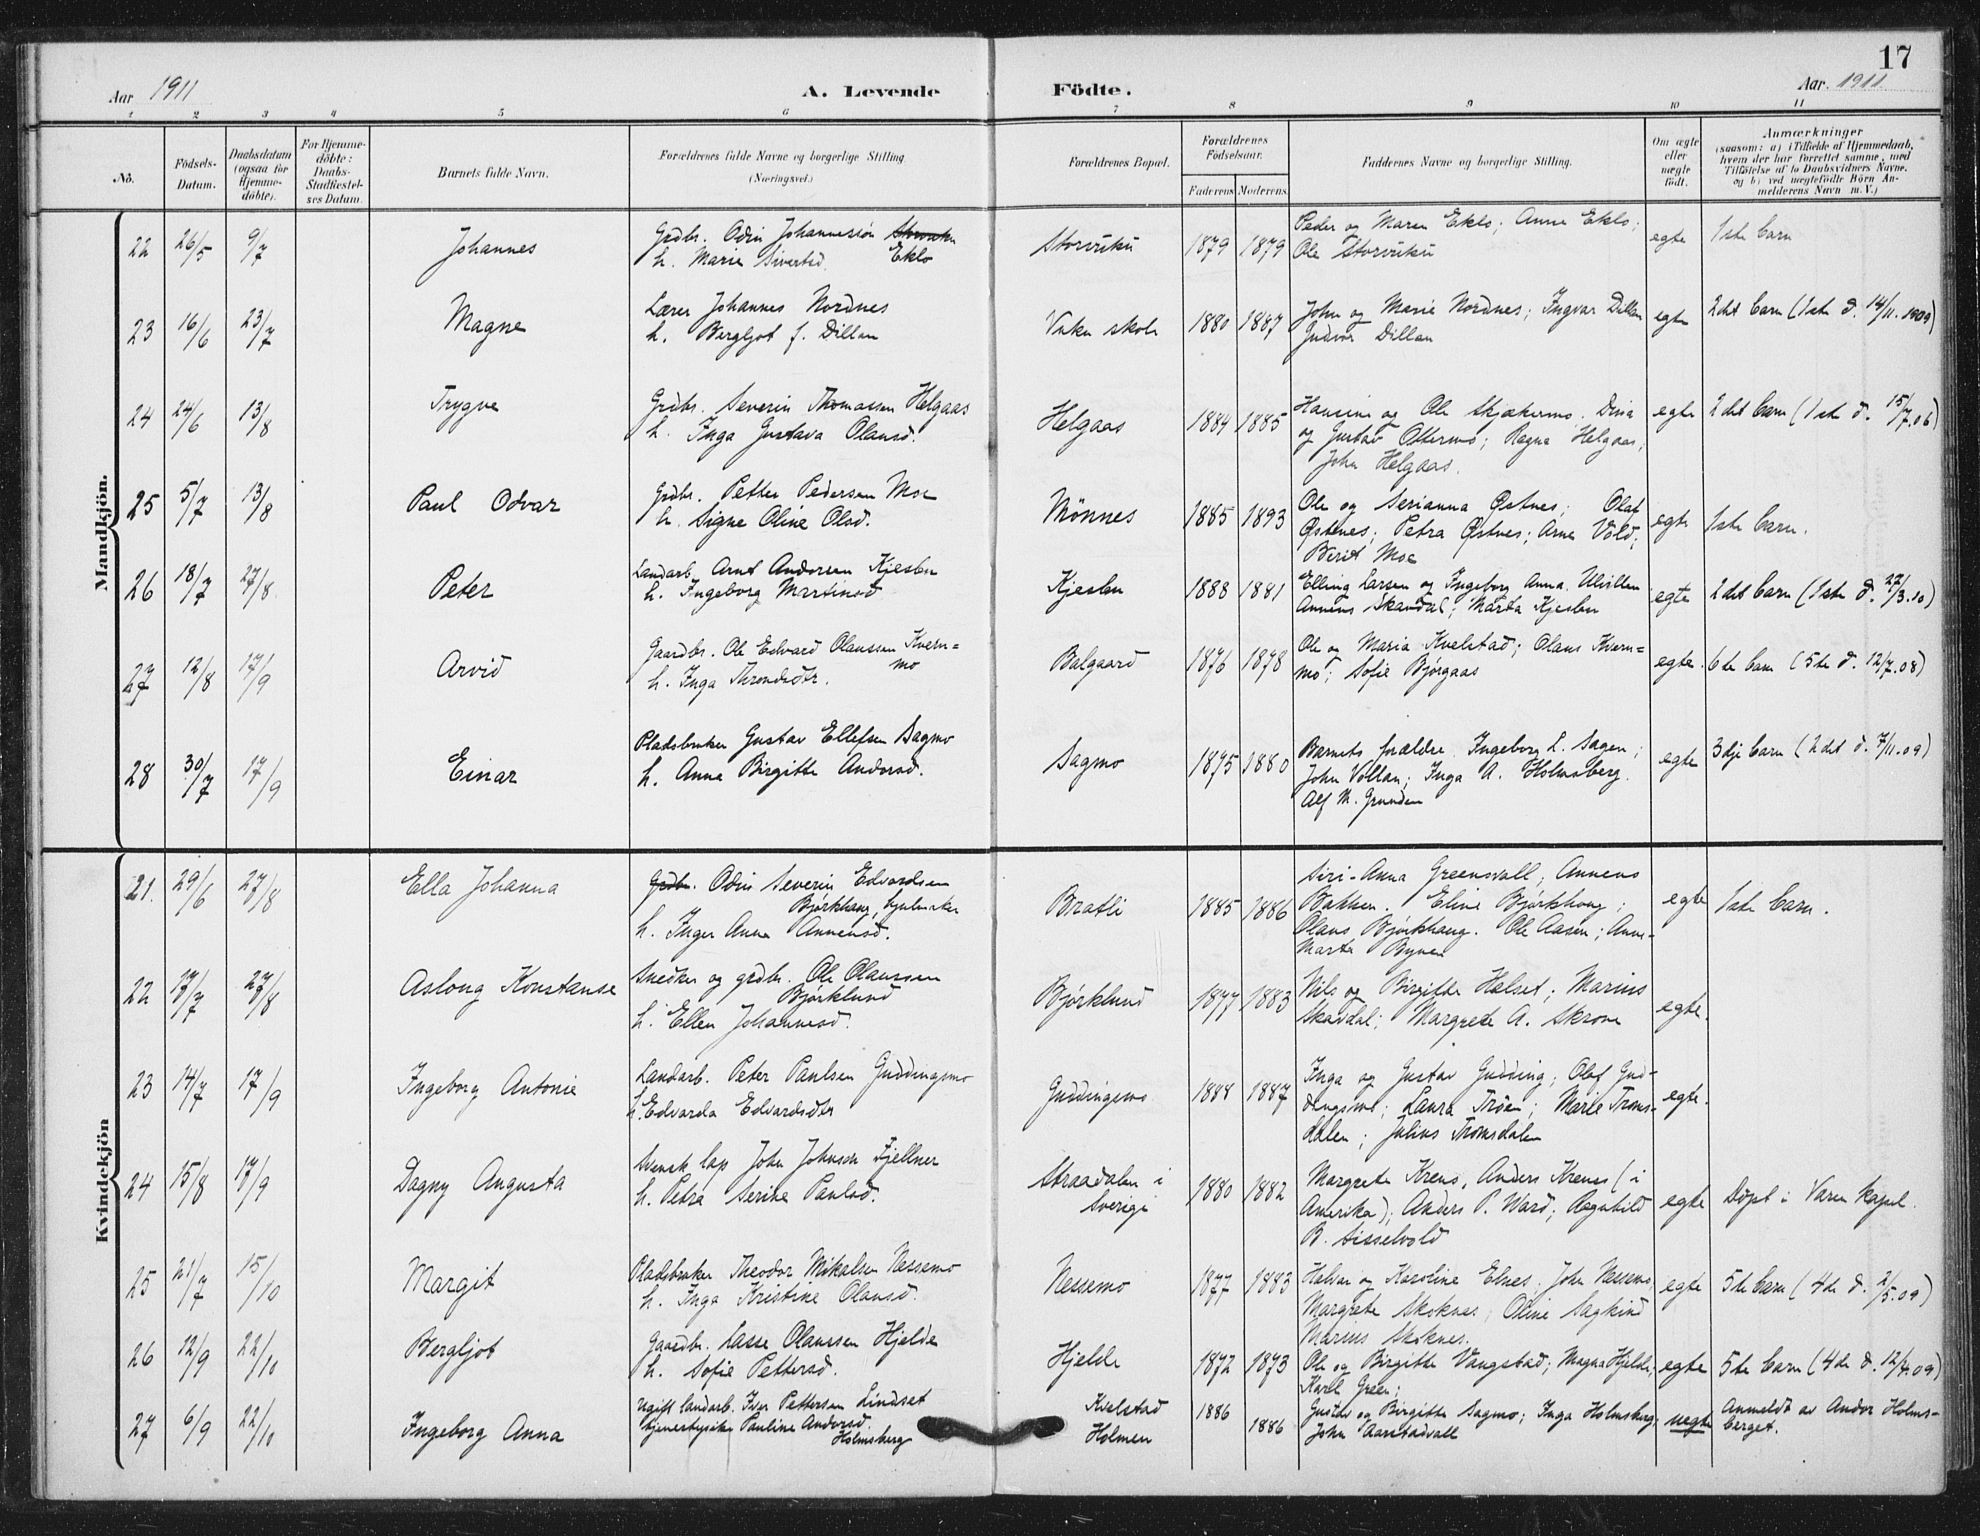 17
Aar 1911 A. Levende Födte. Aar 1911.
1 2 3 4 5 6 7 8 9 10 11
No.
Födsels-Datum.
Daabsdatum (ogsaa for Hjemme-döbte).
For Hjemme-döbte: Daabs-Stadfæstel-ses Datum.
Barnets fulde Navn.
Forældrenes fulde Navne og borgerlige Stilling.
(Næringsvei.)
Forældrenes Bopæl.
Forældrenes Födselsaar.
Faderens Moderens.
Faddernes Navne og borgerlige Stilling.
Om ægte eller uægte födt.
Anmærkninger
(saasom: a) i Tilfælde af Hjemmedaab, hvem der har forrettet samme, med Tilföielse af to Daabsvidners Navne, og b) ved uægtefödte Börn An-melderens Navn m. V.)
Mandkjön.
22 26/5 9/7 Johannes Grdbr. Odin Johannessön Eklo
h. Marie Sivertsd. Storviku 1879 1879 Peder og Maren Eklo; Anna Eklo;
Ole Storviku egte 1ste barn
23 16/6 23/7 Magne Lærer Johannes Nordnes
h. Bergljot f. Dillan Vuku skole 1880 1887 John og Marie Nordnes; Ingvar Dillan
Gudvor Dillan egte 2det barn (1ste d. 14/11.1909)
24 24/6 13/8 Trygve Grdbr. Severin Thomassen Helgaas
h. Inga Gustava Olausd. Helgaas 1884 1885 Hansine og Ole Skjækermo. Dina
og Gustav Ottermo; Ragna Helgaas;
John Helgaas. egte 2det barn (1ste d. 15/7.06)
25 5/7 13/8 Paul Odvar Grdbr. Petter Pedersen Moe
h. Signe Oline Olsd. Mönnes 1885 1893 Ole og Serianna Østnes; Olaf
Østnes; Petra Østnes; Arne Vold;
Berit Moe egte 1ste barn.
26 18/7 27/8 Peter Landarb. Arnt Andersen Kjesbu
h. Ingeborg Martinsd Kjesbu 1888 1881 Elling Larsen og Ingeborg Anna Ulvillen
Annæus Skavdal; Marta Kjesbu egte 2det barn (1ste d. 22/3.10)
27 12/8 17/9 Arvid Gaardbr. Ole Edvard Olaussen Kvern=
mo
h. Inga Throndsdtr. Balgaard 1876 1878 Ole og Maria Kvelstad; Olaus Kvern=
mo; Sofie Bjørgaas egte. 6te barn (5te d. 12/7.08)
28 30/7 17/9 Einar Pladsbruker Gustav Ellefsen Sagmo
h. Anna Birgitte Andersd. Sagmo 1875 1880 Barnets forældre. Ingeborg L. Sagen;
John Vollan; Inga A. Holmsberg.
Alf M. Grunden egte 3dje barn (2det d. 7/11.09)
Kvindekjön
21. 29/6 27/8 Ella Johanna Grdbr. Odin Severin Edvardsen
Bjørkhaug, hjulmaker
h. Inger Anna Annæusd. Bratli 1885 1886 Siri-Anna Greensvall; Annæus
Bakken. Eline Bjørkhaug;
Olaus Bjørkhaug. Ole Aasen; Anne-
Marta Bynen egte 1ste barn.
22 17/7 27/8 Aslaug Konstanse Snedker og grdbr. Ole Olaussen
Bjørklund
h. Ellen Johannesd. Bjørklund 1877 1883 Nils og Birgitte Helset; Marius
Skavdal; Margrete A. Skrove egte.
23 14/7 17/9 Ingeborg Antonie Landarb. Peter Paulsen Guddingsmo
h. Edvarda Edvardsdtr Guddingsmo 1888 1887 Inga og Gustav Gudding; Olaf Gud-
dingsmo; Laura Trøen; Marie Troms-
dalen; Julius Tromsdalen egte.
24 15/8 17/9 Dagny Augusta Svensk lap John Johnson Fjellner
h. Petra Serine Paulsd. Straadalen i
Sverige 1880 1882 Margrete Krens, Anders Krenes (i
Amerika); Anders P. Ward; Ragnhild
B. Sisselvold egte Døpt i Væren kapel.
25 21/7 15/10 Margit Pladsbruker Theodor Mikalsen Nessemo
h. Inga Kristine Olausd. Nessemo 1877 1883 Halvor og Karoline Elnes. John Nessemo
Margrete Skoknes; Oline Sagkind
Marius Skoknes. egte 5te barn (4de d. 2/5.09)
26 12/9 22/10 Bergljot Gaardbr. Lasse Olaussen Hjelde
h. Sofie Pettersd. Hjelde 1872 1873 Ole og Birgitte Vangstad; Magna Hjelde;
Karl Green; egte 5te barn (4de d. 12/4.09)
27 6/9 22/10 Ingeborg Anna Ugift landarb. Iver Pettersen Lindset
tjenestepike Pauline Andersd.
Holmsberg Kvelstad
Holmen 1886 1886 Gustav og Birgitte Sagmo; Inga Holmsberg;
John Aarstadvall uegte Anmeldt av Andor Holms-
berget.